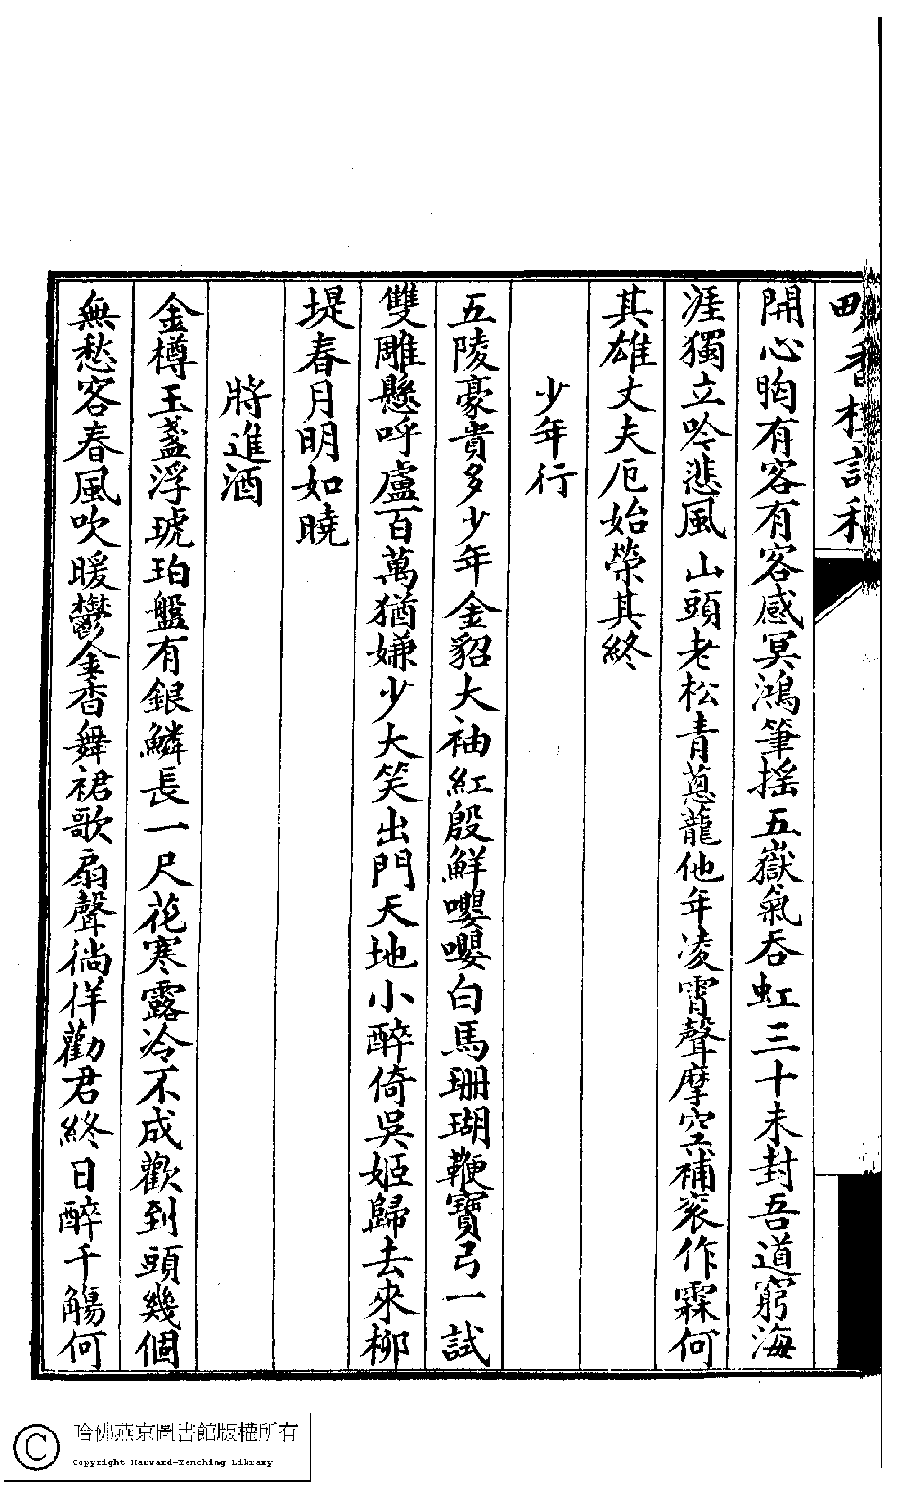 香村詩
開心昫有客有客感冥鴻筆搖五嶽氣吞虹三十未封吾道窮海
涯獨立吟悲風山頭老松青蔥蘢他年凌霄聲摩空補袞作霖何
其雄丈夫厄始榮其終
少年行
五陵豪貴多少年金貂大袖紅殷鮮嚶嚶白馬珊瑚鞭寶弓一試
雙雕懸呼盧百萬猶嫌少大笑出門天地小醉倚吳姬歸去來柳
堤春月明如曉
將進酒
金樽玉盞浮琥珀盤有銀鱗長一尺花寒露冷不成歡到頭幾個
無愁客春風吹暖鬱金香舞裙歌扇聲徜徉勸君終日醉千觴何
哈佛燕京圖書館版權所有
Copyright Harvard-Yenching Library